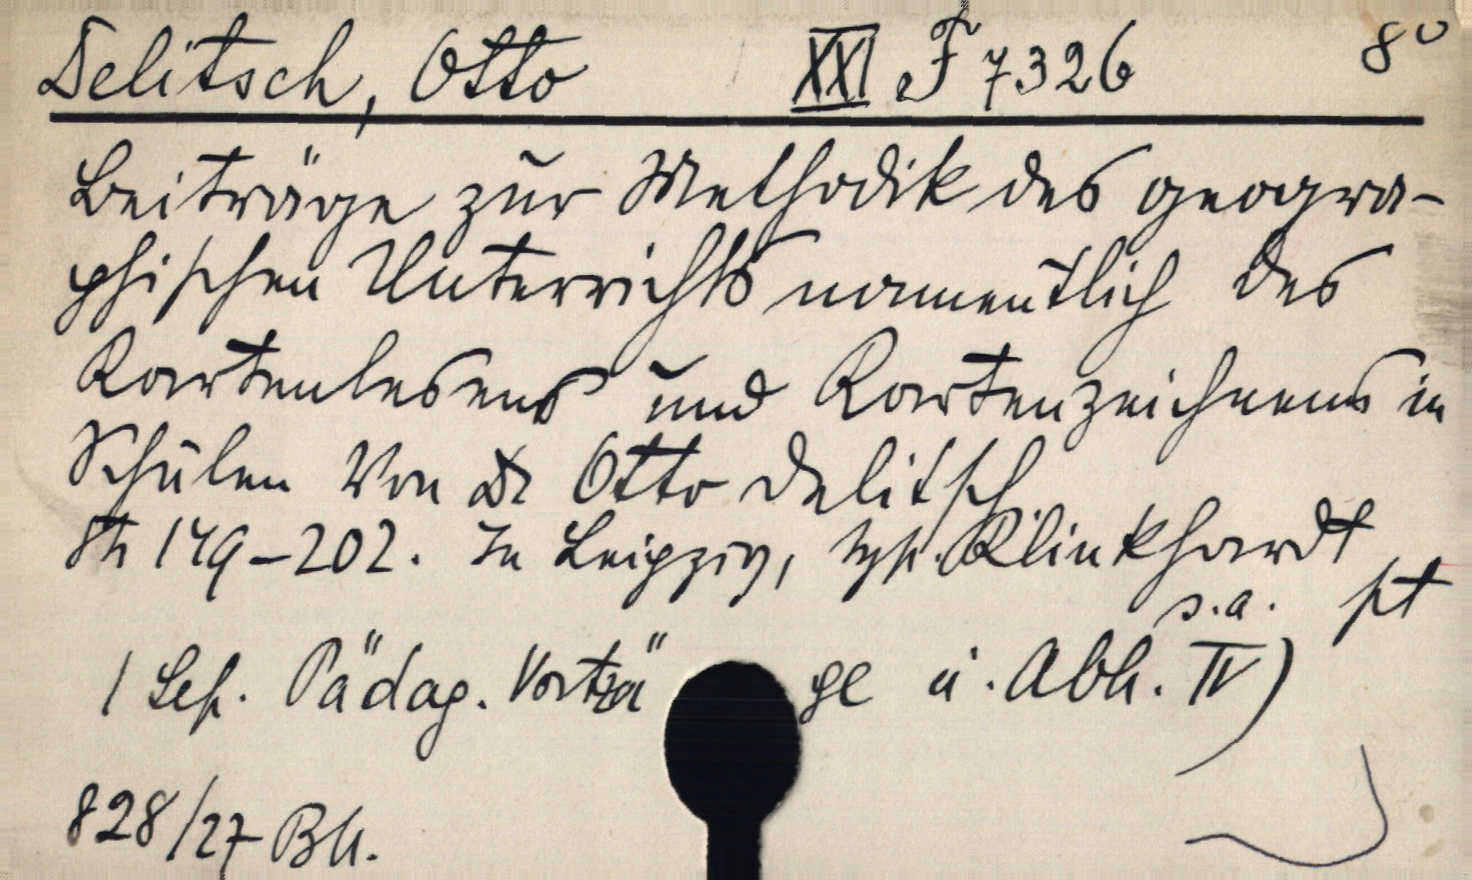 Delitsch, Otto XXI F 7326 8°
Beiträge zur Methodik des geogra-
phischen Unterrichts namentlich des
Kartenlesens und Kartenzeichnens in
Schulen Von Dr Otto Delitsch
149-202. In Leipzig, Klinkhardt
s.a.
( Sep. Pädag. Vorträge u. Abh. IV)
828/27 Bh.